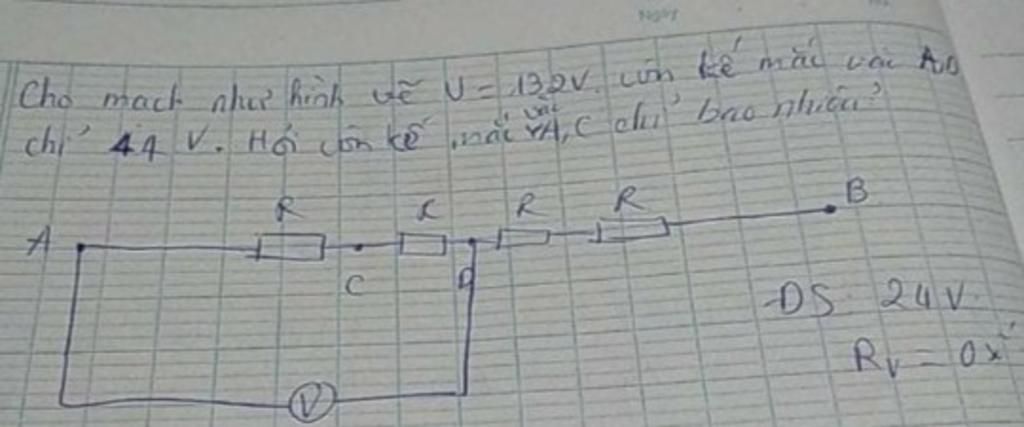 Cho mạch như hình vẽ U = 132V. Vôn kế mắc vài A,D
chỉ 44 V. Hỏi vôn kế mắc vài A,C chỉ bao nhiêu?
R R R R B
A
C D
-DS 24 V
V
Rv = 0x'